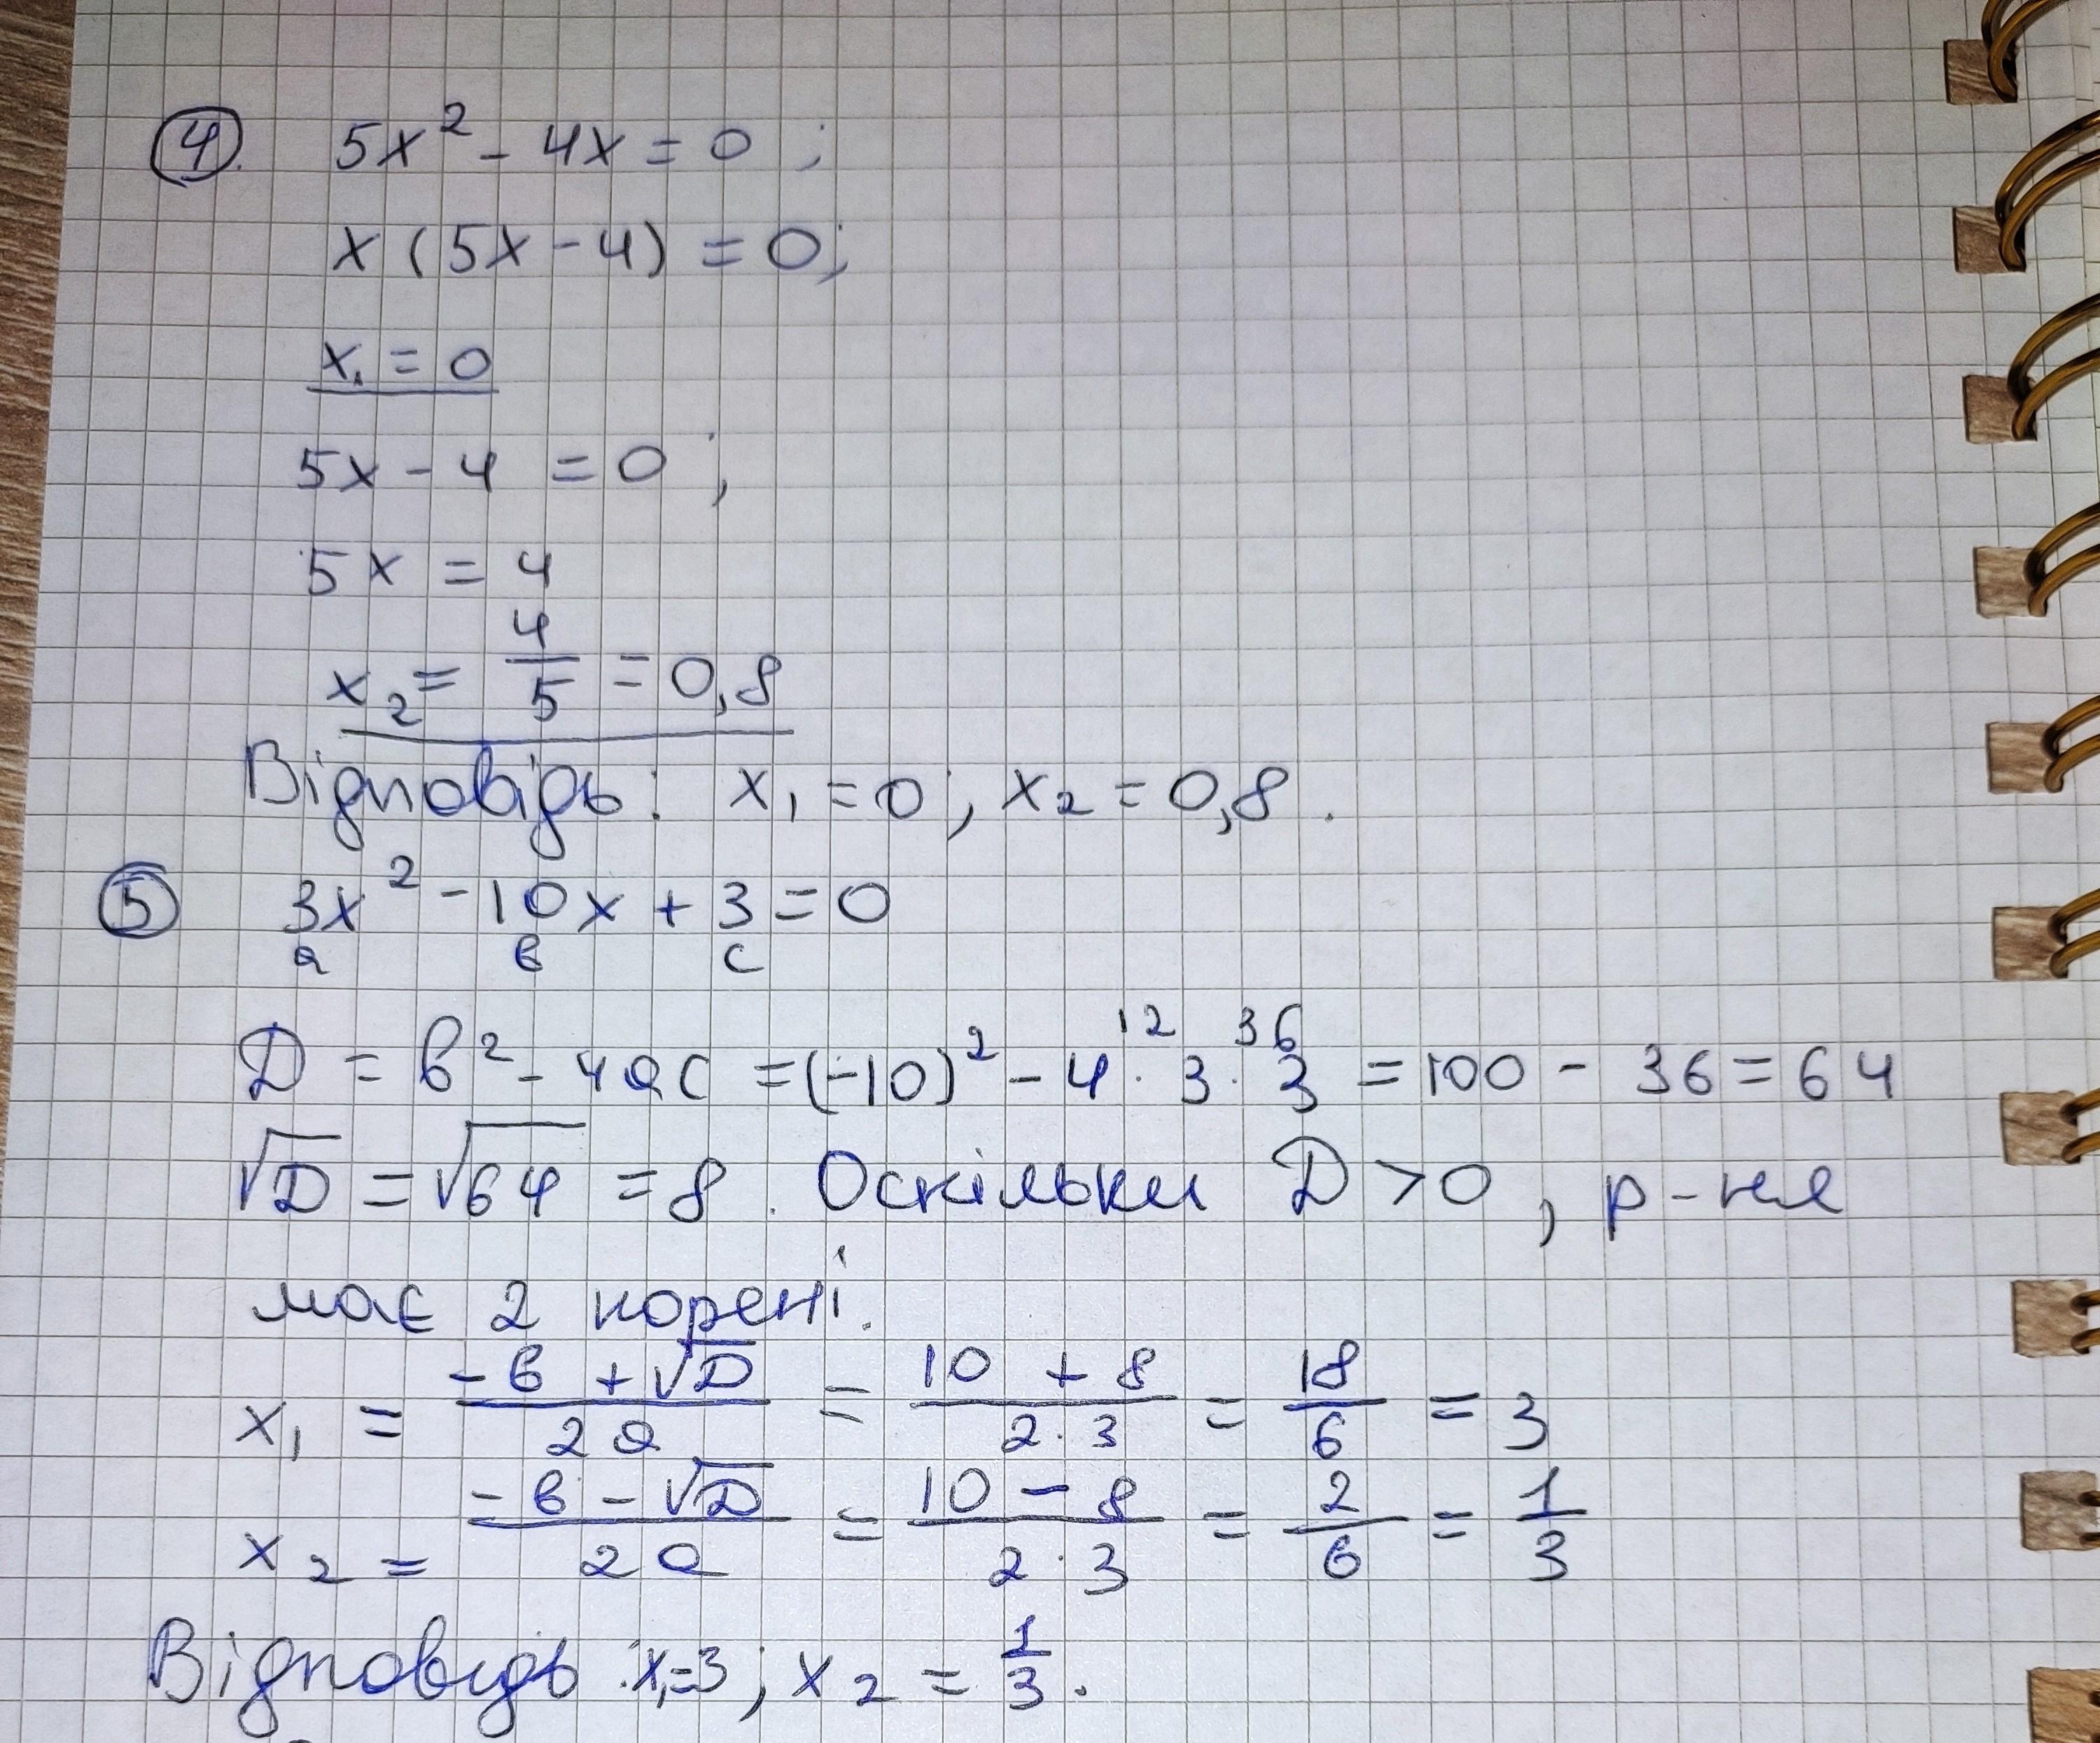 ④. 5x² - 4x = 0 ;
x (5x - 4) = 0;
x₁ = 0
5x - 4 = 0 ;
5x = 4
x₂ = 4/5 = 0,8
Відповідь: x₁ = 0 ; x₂ = 0,8 .
⑤ 3x² - 10x + 3 = 0
a в c
12 36
D = в² - 4ac = (-10)² - 4 · 3 · 3 = 100 - 36 = 64
√D = √64 = 8 . Оскільки D > 0 , р-ня
має 2 корені.
x₁ = (-в + √D)/(2a) = (10 + 8)/(2 · 3) = 18/6 = 3
x₂ = (-в - √D)/(2a) = (10 - 8)/(2 · 3) = 2/6 = 1/3
Відповідь : x₁=3 ; x₂ = 1/3 .